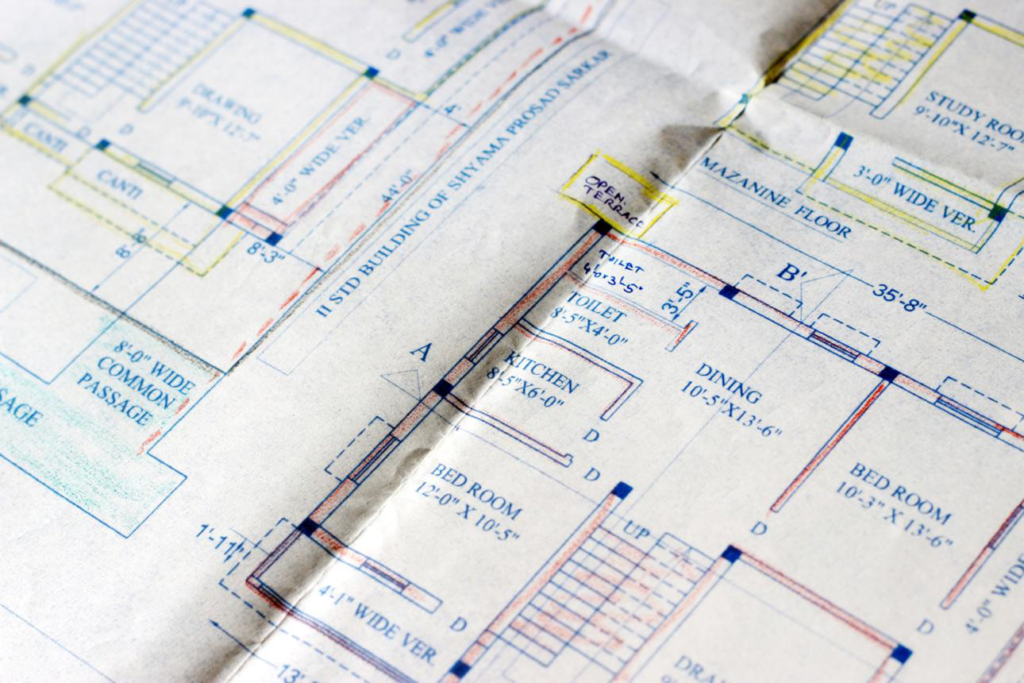 DRAWING
9'-10"X 12'-7"
CANTI
CANTI
D
D
D
4'-0" WIDE VER.
4'
44'-0"
8'-3"
II STD BUILDING OF SHYAMA PROSAD SARKAR
8'-0" WIDE
COMMON
PASSAGE
SAGE
UP
STUDY ROO
9'-10"X 12'-7"
3'-0" WIDE VER.
MAZANINE FLOOR
OPEN
TERRACE
TOILET
3'-5"
TOILET
8'-5"X4'-0"
B'
35'-8"
A
KITCHEN
8'-5"X6'-0"
DINING
10'-5"X13'-6"
D
D
BED ROOM
12'-0" X 10'-5"
BED ROOM
10'-3" X 13'-6"
D
UP
1'-11"
4'-1" WIDE VER.
D
D
4'-0" WIDE
13'
DRA